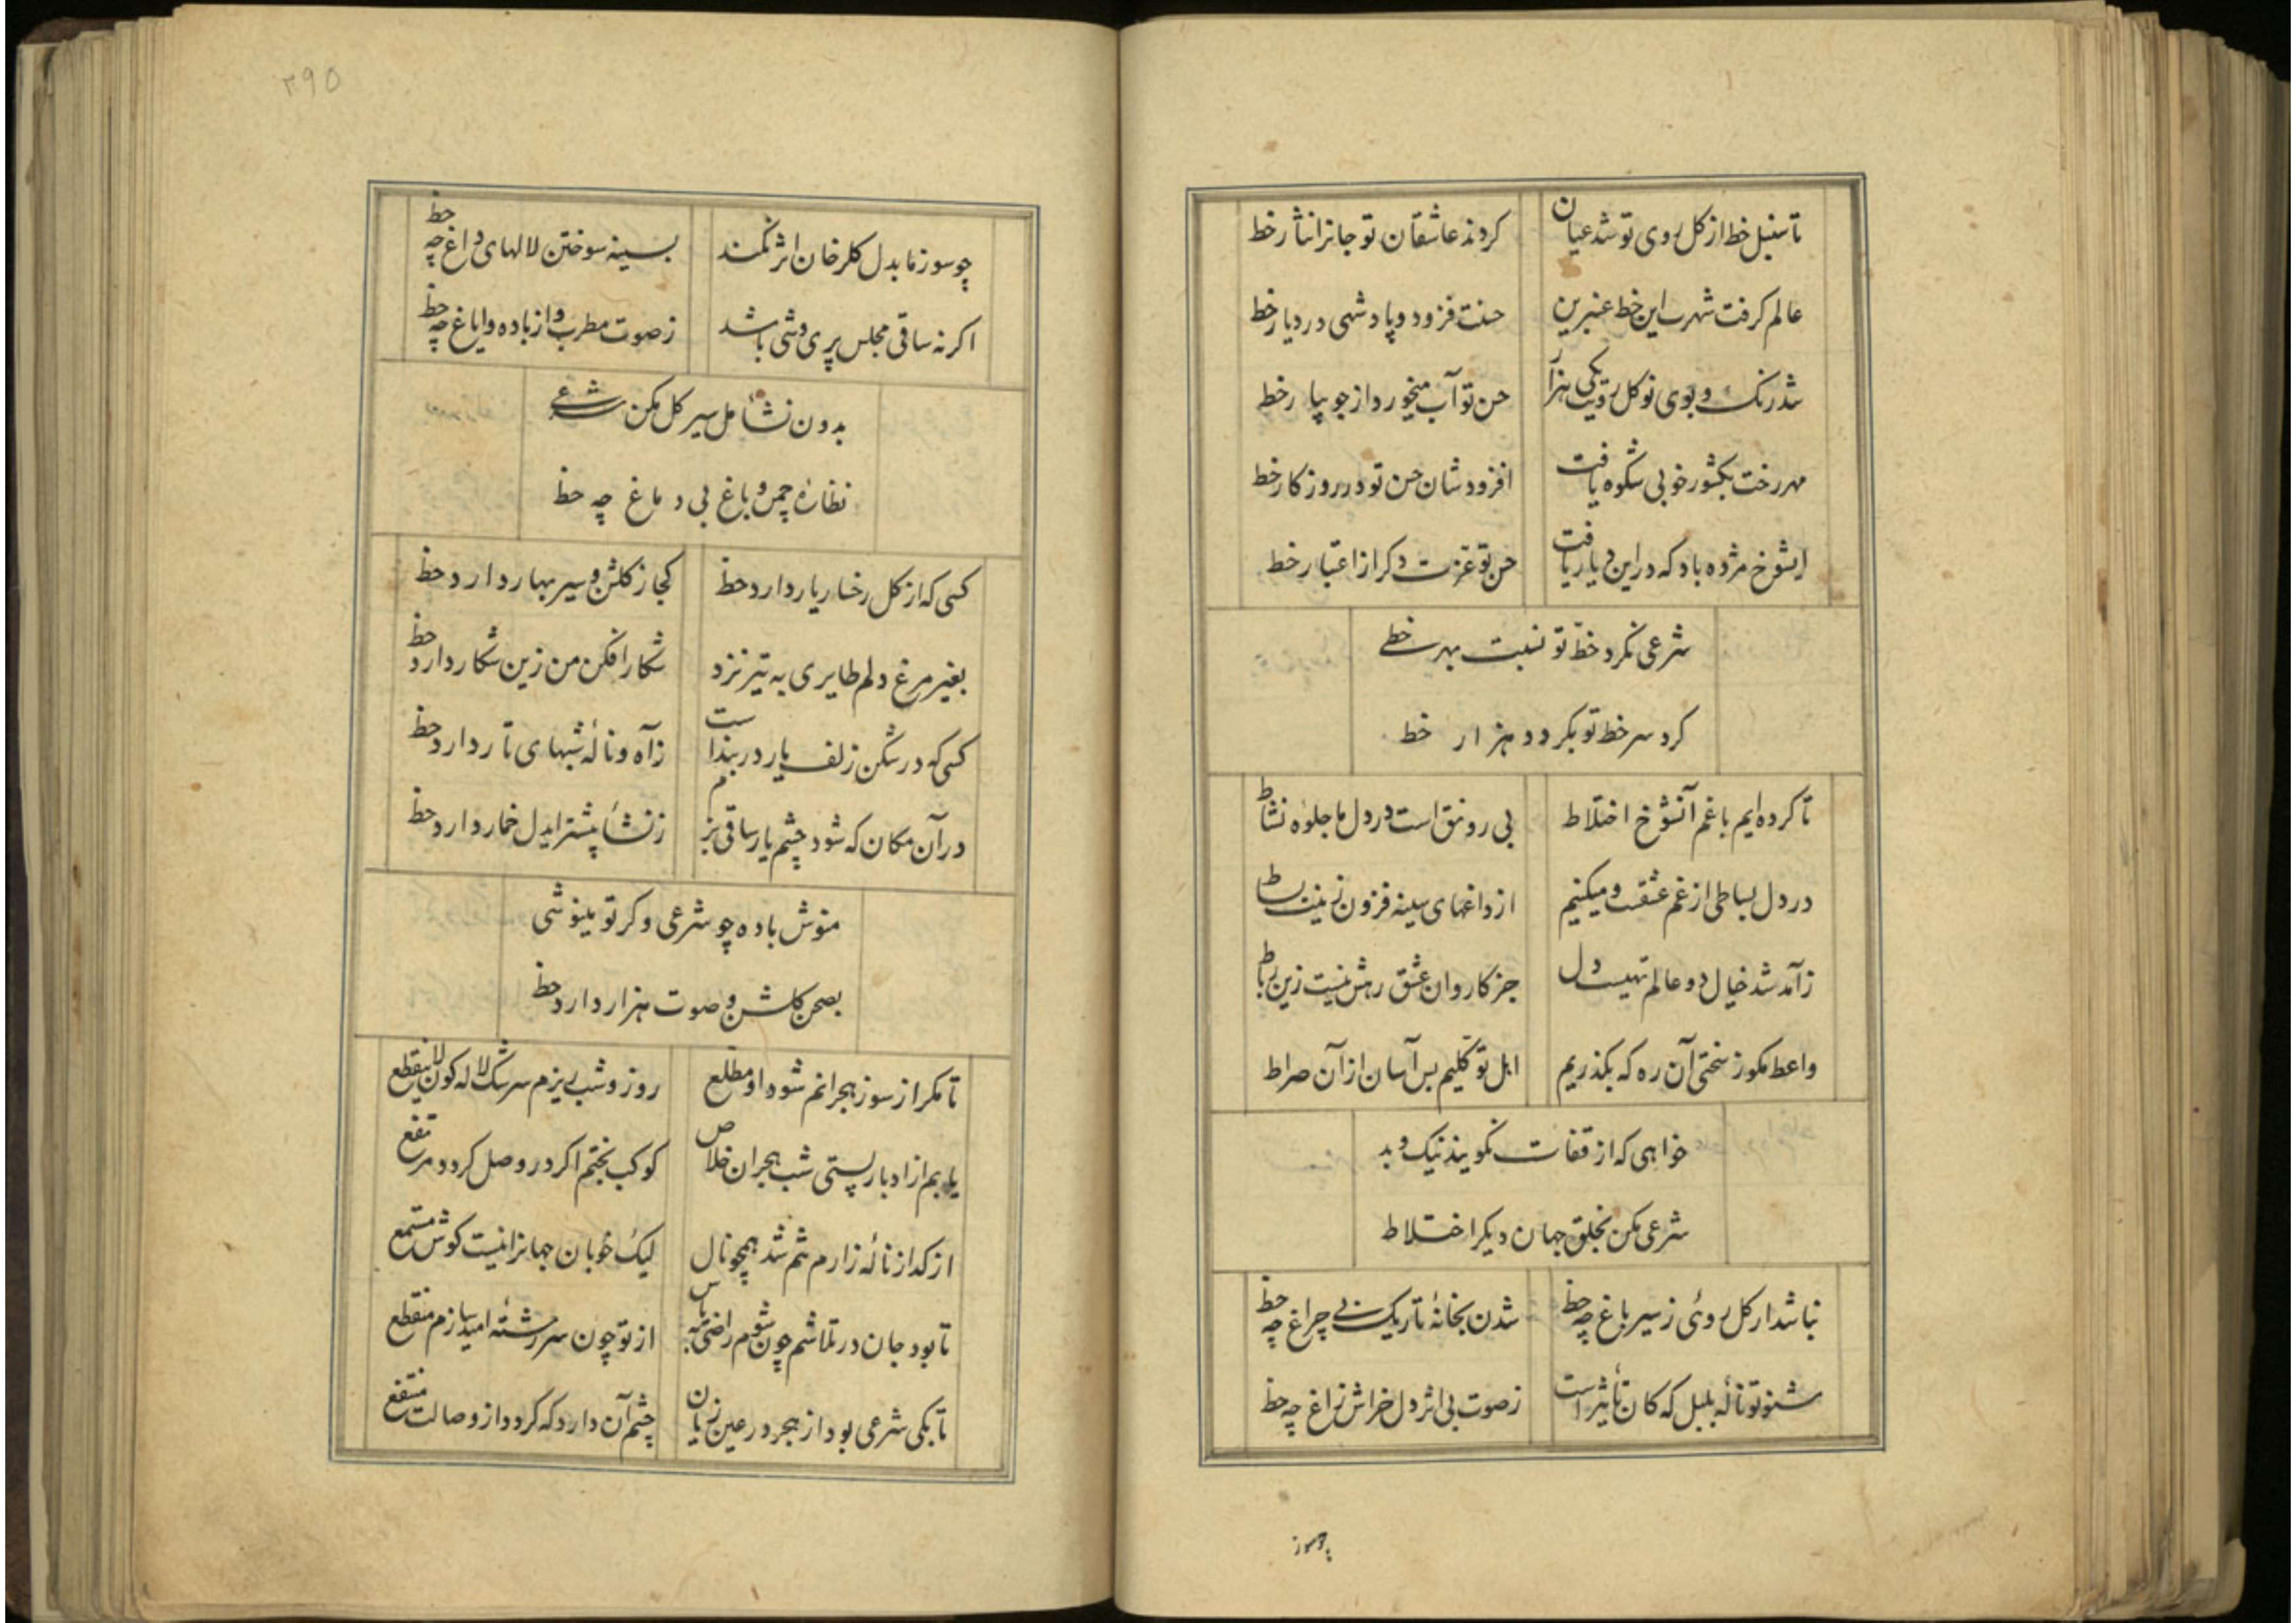 تا سنبل خط از کل روی تو شد عیان کردند عاشقان تو جانرا نثار خط
عالم کرفت شهرت این خط عنبرین حسنت فزود و پادشهی در دیار خط
شد رنک و بوی نو کل رویت یکی هزار حسن تو آب میخورد از جویبار خط
مهر رخت بکشور خوبی شکوه یافت افزود شان حسن تو در روزکار خط
ایشوخ مژده باد که در این دیار یافت حسن تو عزت دکر از اعتبار خط
شرعی نکرد خط تو نسبت بهر خطی
کرد سر خط تو بکردد هزار خط
تا کرده ایم با غم آنشوخ اختلاط بی رونق است در دل ما جلوه نشاط
در دل بساطی از غم عشقت و میکنیم از داغهای سینه فزون زینت بساط
ز آمد شد خیال دو عالم تهیست دل جز کاروان عشق رهش نیست زین رباط
واعظ مکو ز سختی آن ره که بکذریم اهل توکلیم بس آسان از آن صراط
خواهی که از قفات نکویند نیک و بد
شرعی مکن بخلق جهان دیکر اختلاط
نباشد ار کل روئی ز سیر باغ چه حظ شدن بخانه تاریک بی چراغ چه حظ
شنو تو نالهٔ بلبل که کان تأثیر است ز صوت بی اثر دل خراش زاغ چه حظ
چو سوز
۲۹۵
چو سوز ما بدل کلرخان اثر نکند بسینه سوختن لالهای داغ چه حظ
اکر نه ساقی مجلس پری وشی باشد ز صوت مطرب و از باده و ایاغ چه حظ
بدون نشأ مل سیر کل مکن شرعی
نظارهٔ چمن و باغ بی دماغ چه حظ
کسی که از کل رخسار یار دارد حظ کجا ز کلشن و سیر بهار دارد حظ
بغیر مرغ دلم طایری به تیر نزد شکار افکن من زین شکار دارد حظ
کسی که در شکن زلف یار در بند است ز آه و نالهٔ شبهای تار دارد حظ
در آن مکان که شود چشم یار ساقی بزم ز نشأ پیشتر ایدل خمار دارد حظ
منوش باده چو شرعی و کر تو مینوشی
بصحن کلشن و صوت هزار دارد حظ
تا مکر از سوز هجرانم شود او مطلع روز و شب ریزم سرشک لاله کون لاینقطع
یابم از ادبار پستی شب هجران خلاص کوکب بختم اکر در وصل کردد مرتفع
از کداز نالهٔ زارم شد همچو نال لیک خوبان جهانرا نیست کوش مستمع
تا بود جان در تنم چون شوم راضی بیاس از تو چون سررشته امید سازم منقطع
تا بکی شرعی بود از هجر در عین زیان چشم آن دارد که کردد از وصالت منتفع